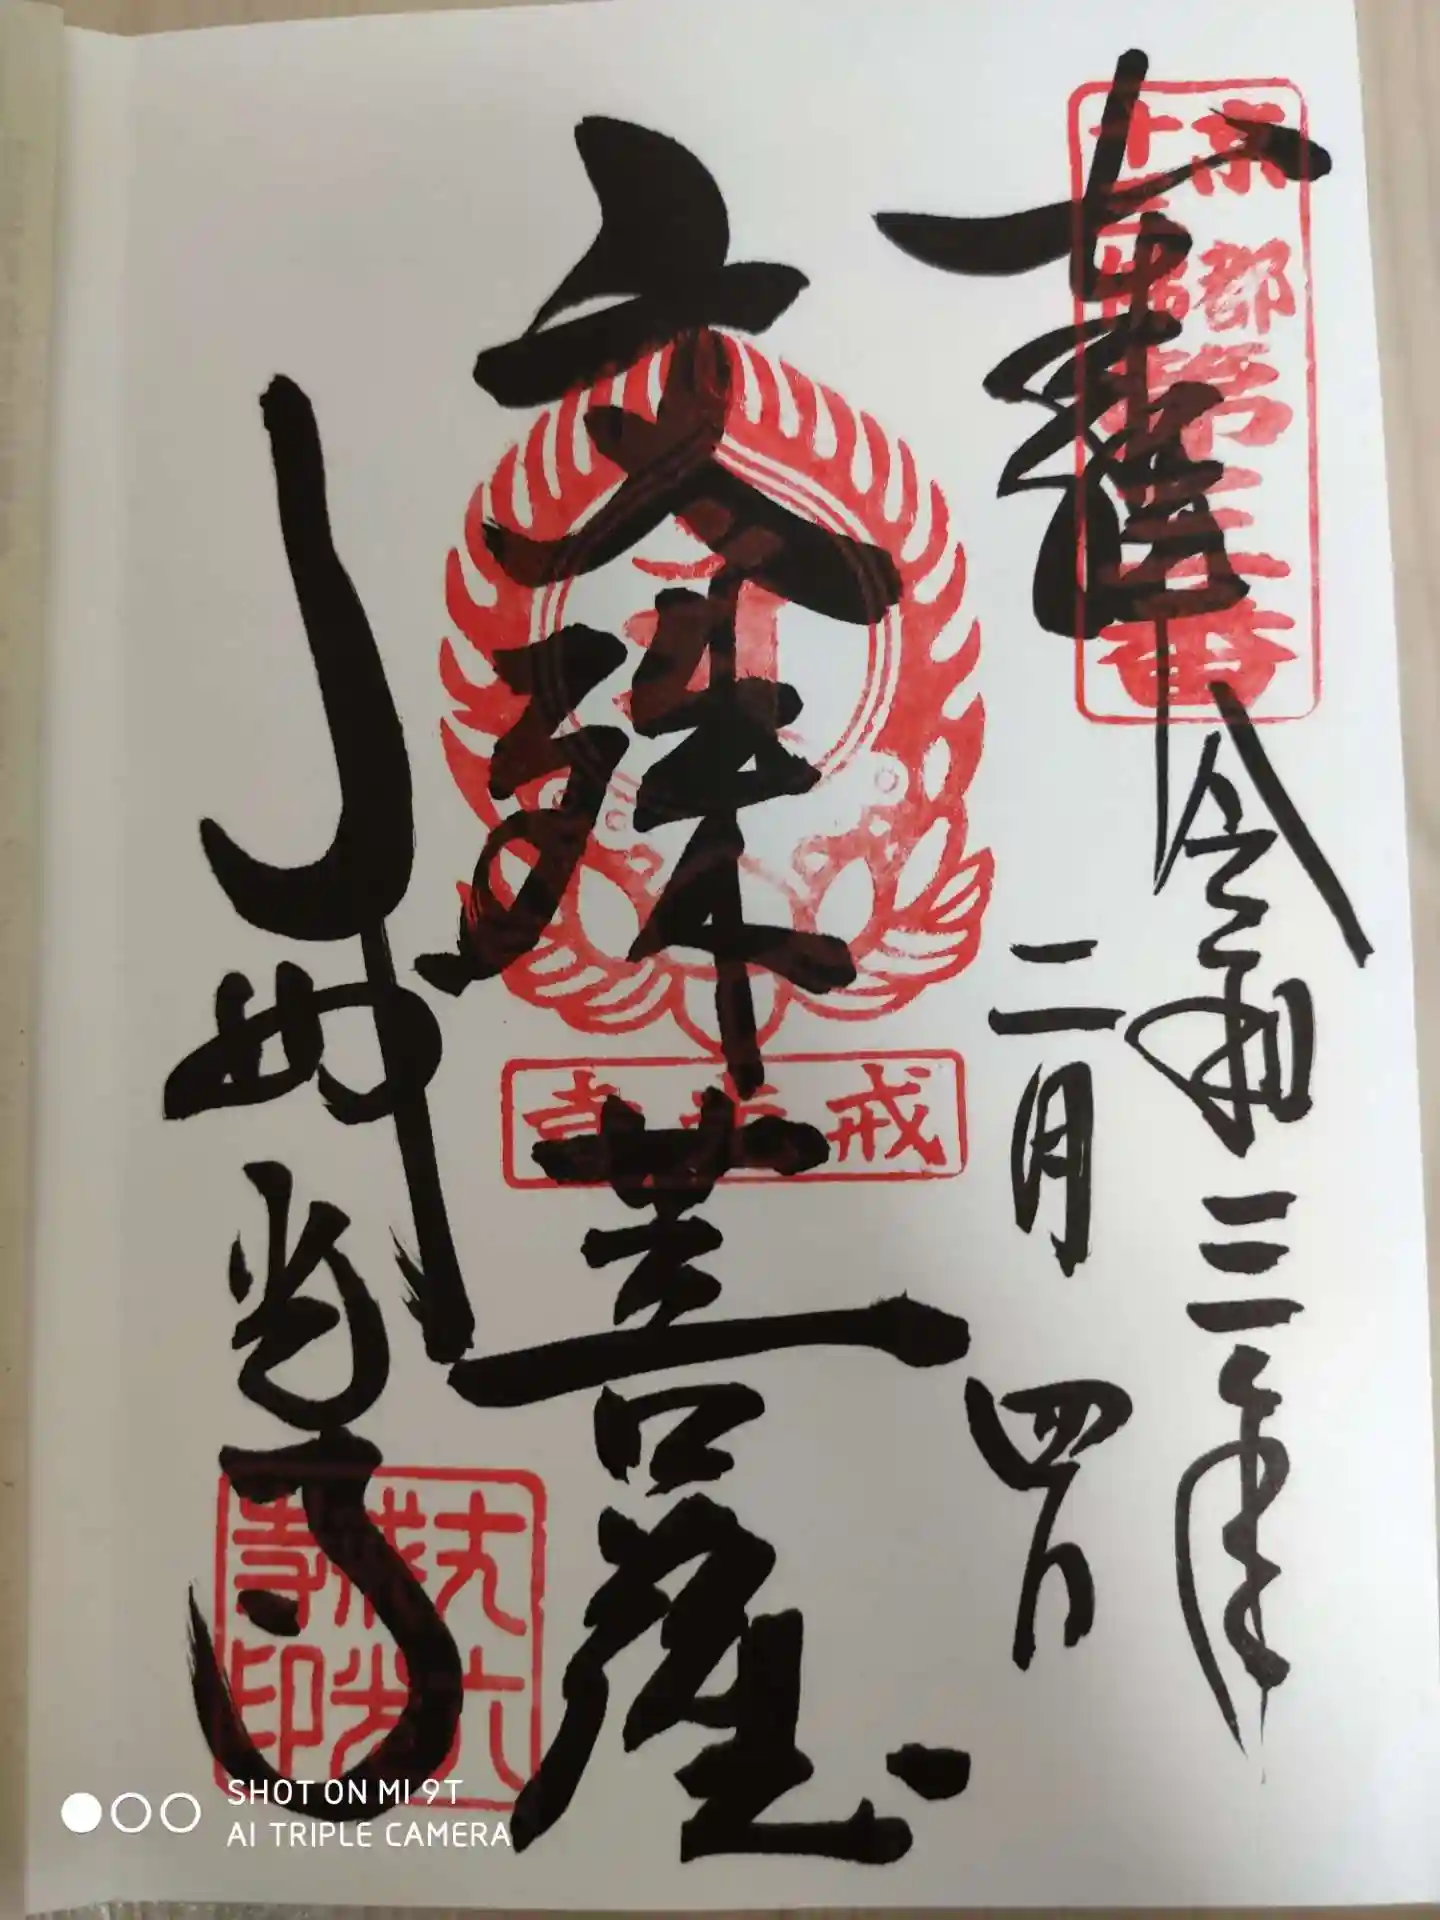 奉拝
京都
十三佛第三番
令和三年
二月四日
文殊菩薩
戒光寺
戒光寺
丈六
戒光
寺印
SHOT ON MI 9T
AI TRIPLE CAMERA